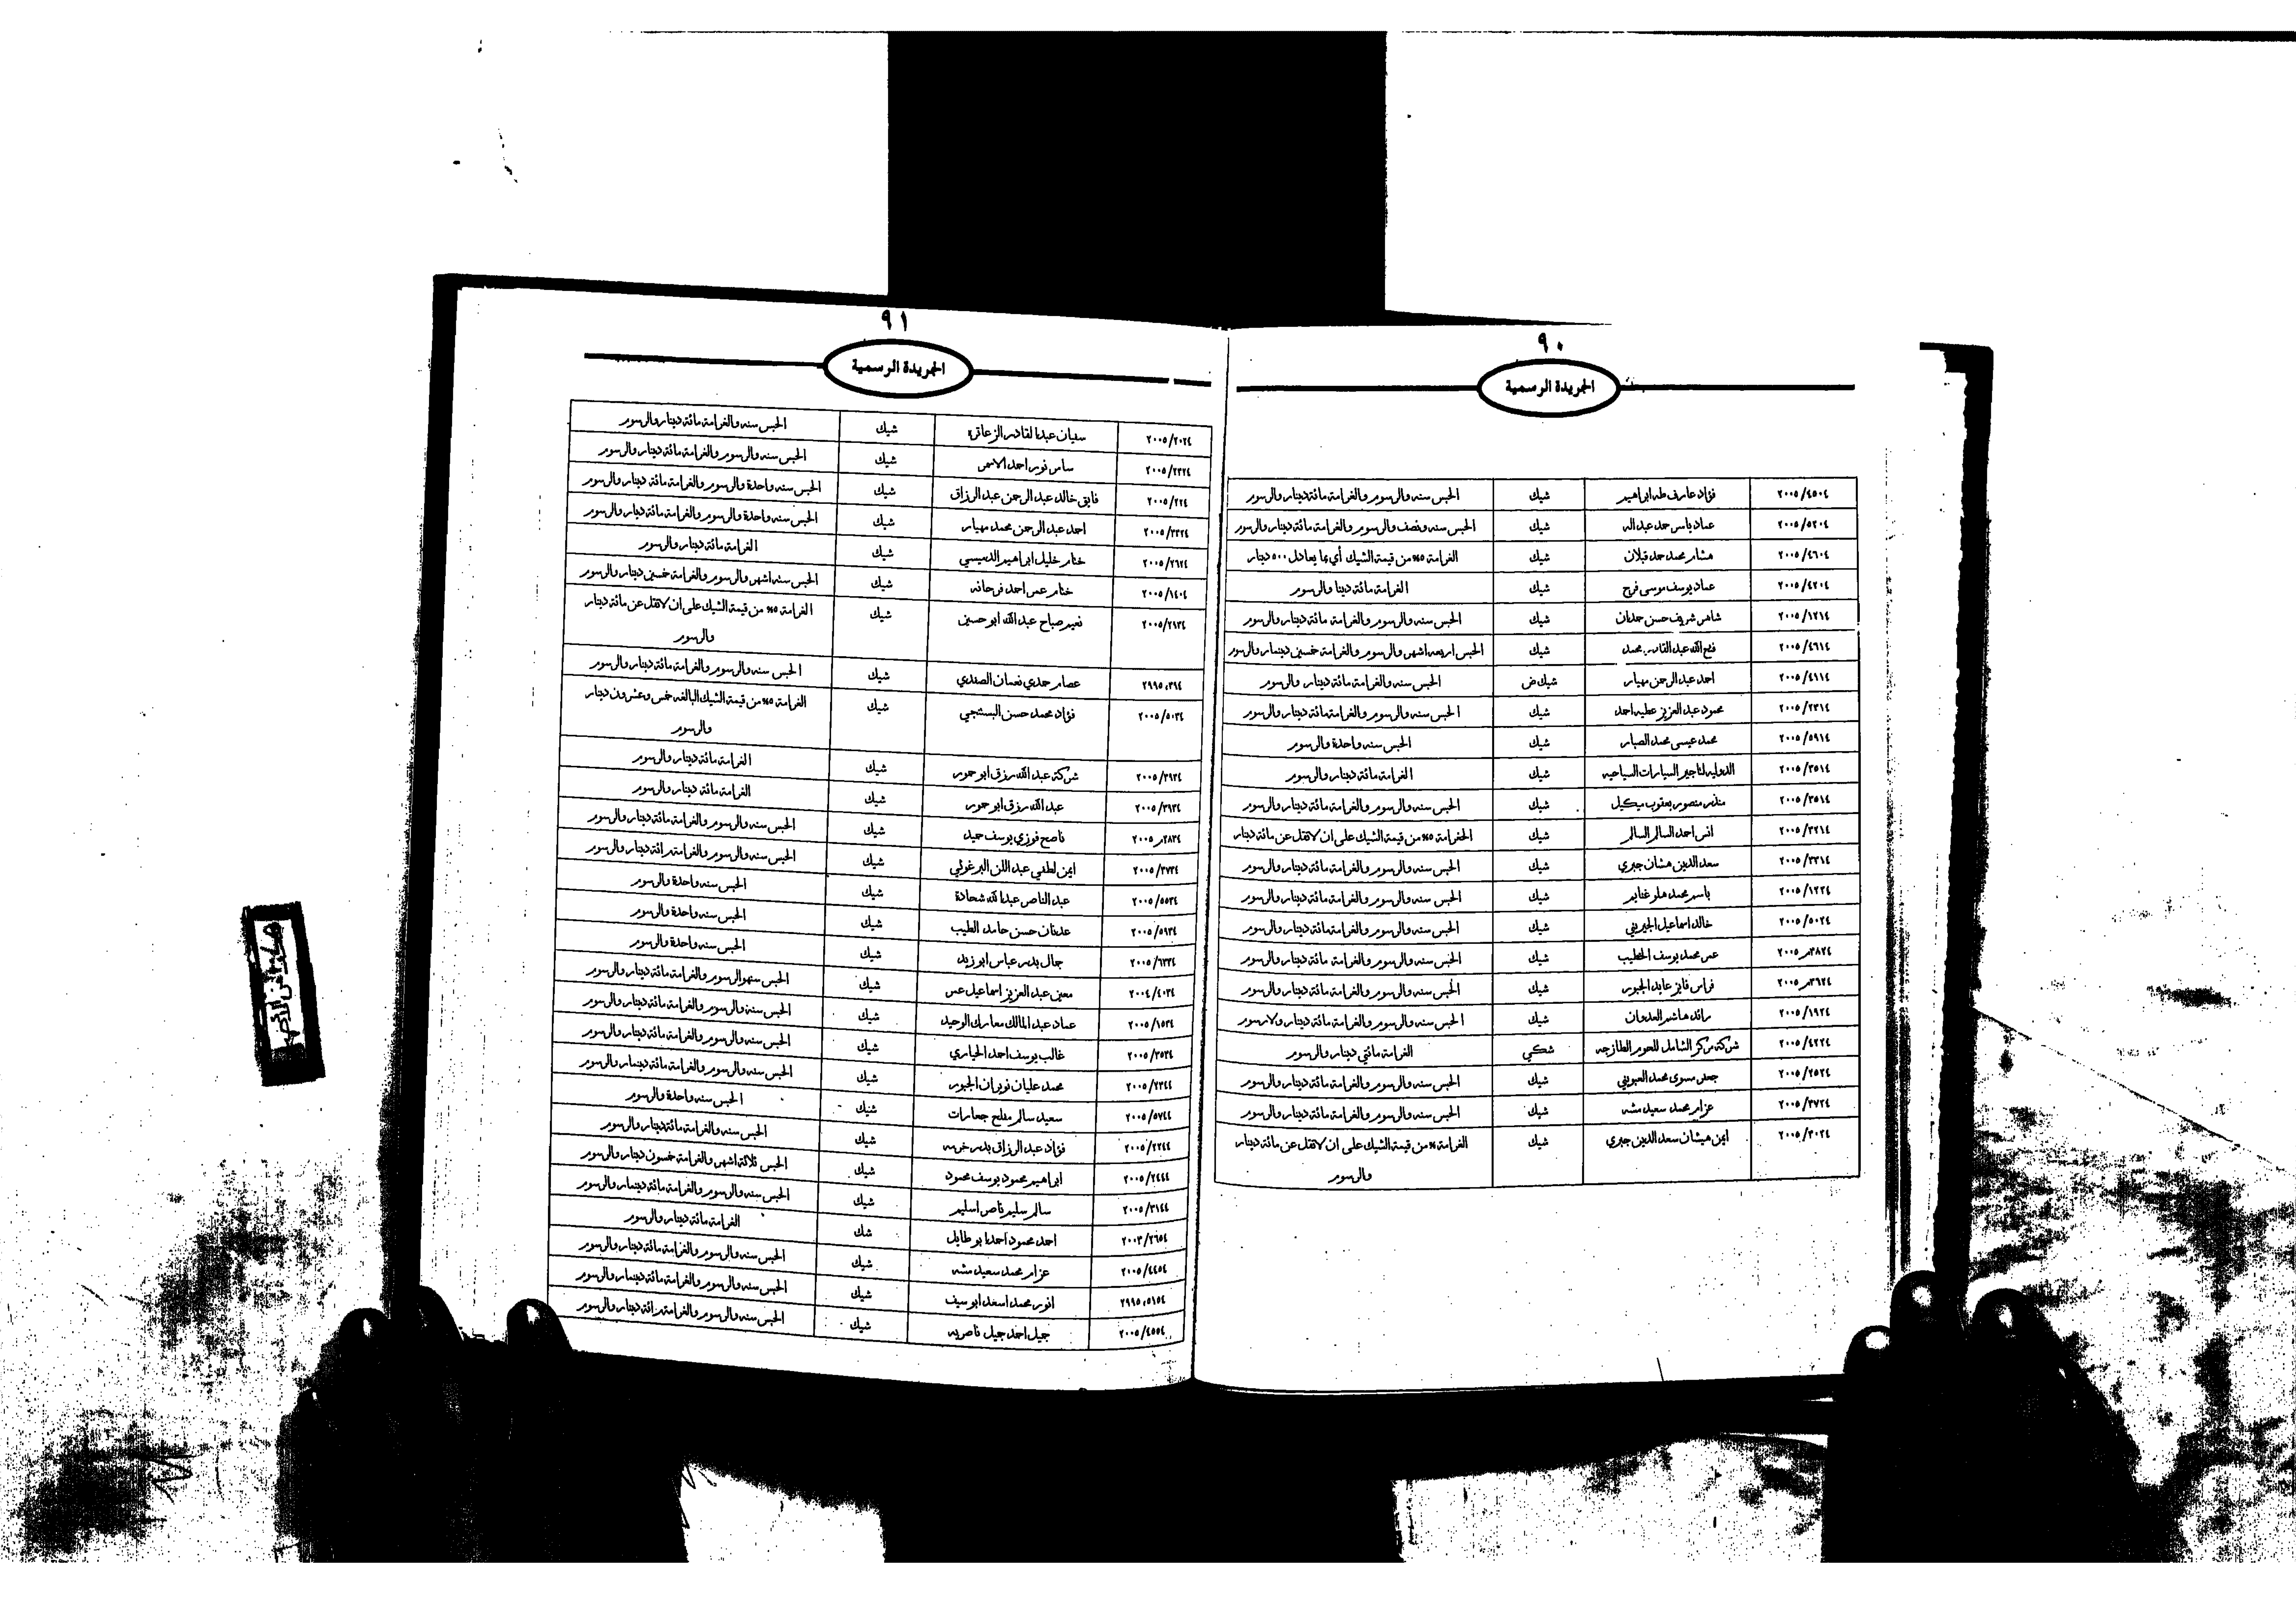 ٩٠
الجريدة الرسمية
٢٠٠٥/٤٥٠٤ فؤاد عارف طه ابراهيم شيك الحبس سنه والرسوم والغرامة مائة دينار والرسوم
٢٠٠٥/٥٢٠٤ عماد ياسر حمد عبد اله شيك الحبس سنه ونصف والرسوم والغرامة مائة دينار والرسوم
٢٠٠٥/٤٦٠٤ مشار محمد حمد قبلان شيك الغرامة ٥% من قيمة الشيك أي بما يعادل ٥٠٠ دينار
٢٠٠٥/٤٢٠٤ عماد يوسف موسى فرح شيك الغرامة مائة دينا والرسوم
٢٠٠٥/١٢١٤ شاهر شريف حسن حمدان شيك الحبس سنه والرسوم والغرامة مائة دينار والرسوم
٢٠٠٥/٤٦١٤ فتح الله عبد القادر محمد شيك الحبس اربعه اشهر والرسوم والغرامة خمسين دينمار والرسوم
٢٠٠٥/٤١١٤ احمد عبد الرحمن مهيار شيك ض الحبس سنه والغرامة مائة دينار والرسوم
٢٠٠٥/٢٣١٤ محمود عبد العزيز عطيه احمد شيك الحبس سنه والرسوم والغرامة مائة دينار والرسوم
٢٠٠٥/٥٩١٤ محمد عيسى محمد الصبار شيك الحبس سنه واحدة والرسوم
٢٠٠٥/٣٥١٤ الدوليه لتاجير السيارات السياحيه شيك الغرامة مائة دينار والرسوم
٢٠٠٥/٣٥١٤ منذر منصور يعقوب ميكيل شيك الحبس سنه والرسوم والغرامة مائة دينار والرسوم
٢٠٠٥/٣٢١٤ انس احمد السالم السالم شيك الحغرامة ٥% من قيمة الشيك على ان لا تقل عن مائة دينار
٢٠٠٥/٣٣١٤ سعد الدين هشان جبري شيك الحبس سنه والرسوم والغرامة مائة دينار والرسوم
٢٠٠٥/١٢٢٤ باسم محمد هلو غنايم شيك الحبس سنه والرسوم والغرامة مائة دينار والرسوم
٢٠٠٥/٥٠٢٤ خالد اسماعيل الجبريني شيك الحبس سنه والرسوم والغرامة مائة دينار والرسوم
٣٨٢٤ر٢٠٠٥ عمر محمد يوسف الخطيب شيك الحبس سنه والرسوم والغرامة مائة دينار والرسوم
٣٦٢٤ر٢٠٠٥ فراس فايز عايد الجبور شيك الحبس سنه والرسوم والغرامة مائة دينار والرسوم
٢٠٠٥/١٩٢٤ رائد هاشم العدوان شيك الحبس سنه والرسوم والغرامة مائة دينار ولارسوم
٢٠٠٥/٤٢٢٤ شركة مركز الشامل للحوم الطازجه شكي الغرامة مائتي دينار والرسوم
٢٠٠٥/٢٥٢٤ جعفر مسوى محمد العبويني شيك الحبس سنه والرسوم والغرامة مائة دينار والرسوم
٢٠٠٥/٣٧٢٤ عزام محمد سعيد مشه شيك الحبس سنه والرسوم والغرامة مائة دينار والرسوم
٢٠٠٥/٣٠٢٤ ايمن هيشان سعد الدين جبري شيك الغرامة % من قيمة الشيك على ان لا تقل عن مائة دينار
والرسوم
٩١
الجريدة الرسمية
٢٠٠٥/٢٠٢٤ سفيان عبد القادر الزعاترة شيك الحبس سنه والغرامة مائة دينار والرسوم
٢٠٠٥/٢٣٢٤ سامر نور احمد الاسمر شيك الحبس سنه والرسوم والغرامة مائة دينار والرسوم
٢٠٠٥/٢٢٤ فايق خالد عبد الرحمن عبد الرزاق شيك الحبس سنه واحدة والرسوم والغرامة مائة دينار والرسوم
٢٠٠٥/٣٣٢٤ احمد عبد الرحمن محمد مهيار شيك الحبس سنه واحدة والرسوم والغرامة مائة ديار والرسوم
٢٠٠٥/٢٦٢٤ ختام خليل ابراهيم الدميسي شيك الغرامة مائة دينار والرسوم
٢٠٠٥/١٤٠٤ ختام عمر احمد فرحانه شيك الحبس سته اشهر والرسوم والغرامة خمسين دينار والرسوم
٢٠٠٥/٢١٣٤ نعيم صباح عبد الله ابو حسين شيك الغرامة ٥% من قيمة الشيك على ان لا تقل عن مائة دينار
والرسوم
٢٩٩٥،٣٩٤ عصام حمدي نعمان الصفدي شيك الحبس سنه والرسوم والغرامة مائة دينار والرسوم
٢٠٠٥/٥٠٣٤ فؤاد محمد حسن البستنجي شيك الغرامة ٥% من قيمة الشيك البالغه خمس وعشرون دينار
والرسوم
٢٠٠٥/٣٩٣٤ شركة عبد الله رزق ابو حمور شيك الغرامة مائة دينار والرسوم
٢٠٠٥/٣٩٣٤ عبد الله رزق ابو حمور شيك الغرامة مائة دينار والرسوم
٢٨٣٤ر٢٠٠٥ ناصح فوزي يوسف حميد شيك الحبس سنه والرسوم والغرامة مائة دينار والرسوم
٢٠٠٥/٣٧٣٤ ايمن لطفي عبد اللن البرغوثي شيك الحبس سنه والرسوم والغرامة مرائة دينار والرسوم
٢٠٠٥/٥٥٣٤ عبد الناصر عبد الله شحادة شيك الحبس سنه واحدة والرسوم
٢٠٠٥/٥٩٣٤ عدنان حسن حامد الطيب شيك الحبس سنه واحدة والرسوم
٢٠٠٥/٦٣٣٤ جمال بدر عباس ابو زيد شيك الحبس سنه واحدة والرسوم
٢٠٠٤/٤٠٣٤ معين عبد العزيز اسماعيل عمر شيك الحبس سنهوالرسوم والغرامة مائة دينار والرسوم
٢٠٠٥/١٥٣٤ عماد عبد المالك معارك الوحيد شيك الحبس سنه والرسوم والغرامة مائة دينار والرسوم
٢٠٠٥/٣٥٣٤ غالب يوسف احمد الحياري شيك الحبس سنه والرسوم والغرامة مائة دينار والرسوم
٢٠٠٥/٢٣٤٤ محمد عليان نويران الجبور شيك الحبس سنه والرسوم والغرامة مائة دينمار والرسوم
٢٠٠٥/٥٧٤٤ سعيد سالم مفلح جعارات شنيك الحبس سنه واحدة والرسوم
٢٠٠٥/٢٢٤٤ فؤاد عبد الرزاق بدر خرمه شيك الحبس سنه والغرامة مائة دينار والرسوم
٢٠٠٥/٢٤٤٤ ابراهيم محمود يوسف محمود شيك الحبس ثلاثة اشهر والغرامة خمسون دينار والرسوم
٢٠٠٥/٣١٤٤ سالم سليم ناصر اسليم شيك الحبس سنه والرسوم والغرامة مائة دينمار والرسوم
٢٠٠٣/٢٦٥٤ احمد محمود احمد ابو طايل شك الغرامة مائة دينار والرسوم
٢٠٠٥/٤٤٥٤ عزام محمد سعيد مشه شيك الحبس سنه والرسوم والغرامة مائة دينار والرسوم
٢٩٩٥،٥١٥٤ انور محمد اسعد ابو سيف شيك الحبس سنه والرسوم والغرامة مائة دينمار والرسوم
٢٠٠٥/٤٥٥٤ جميل احمد جميل ناصريه شيك الحبس سنه والرسوم والغرامة مرائة دينار والرسوم